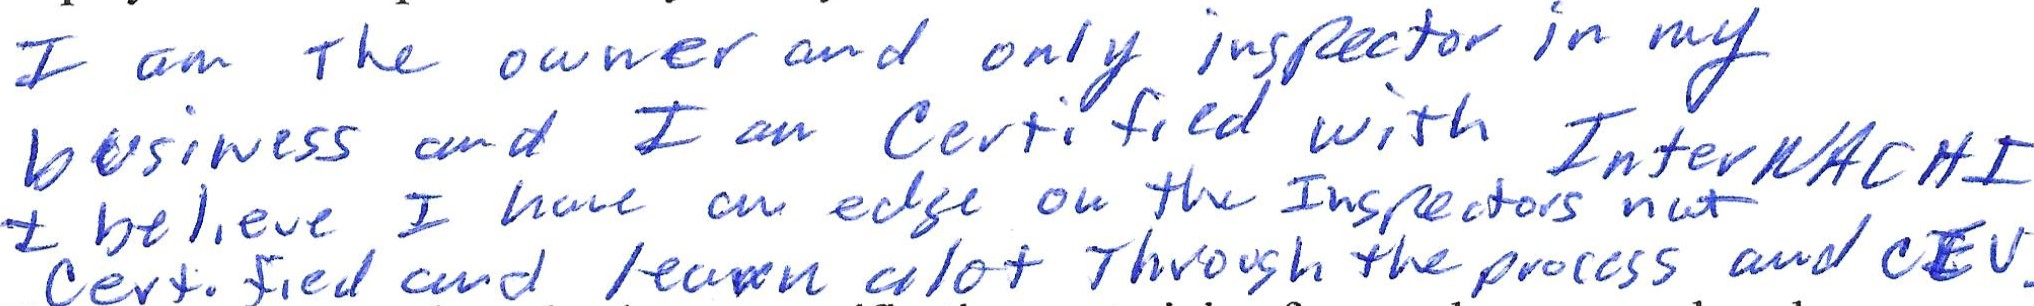 I am The owner and only inspector in my
business and I am Certified with InterNACHI
I believe I have an edge on the Inspectors not
Certified and learn alot Through the process and CEU.